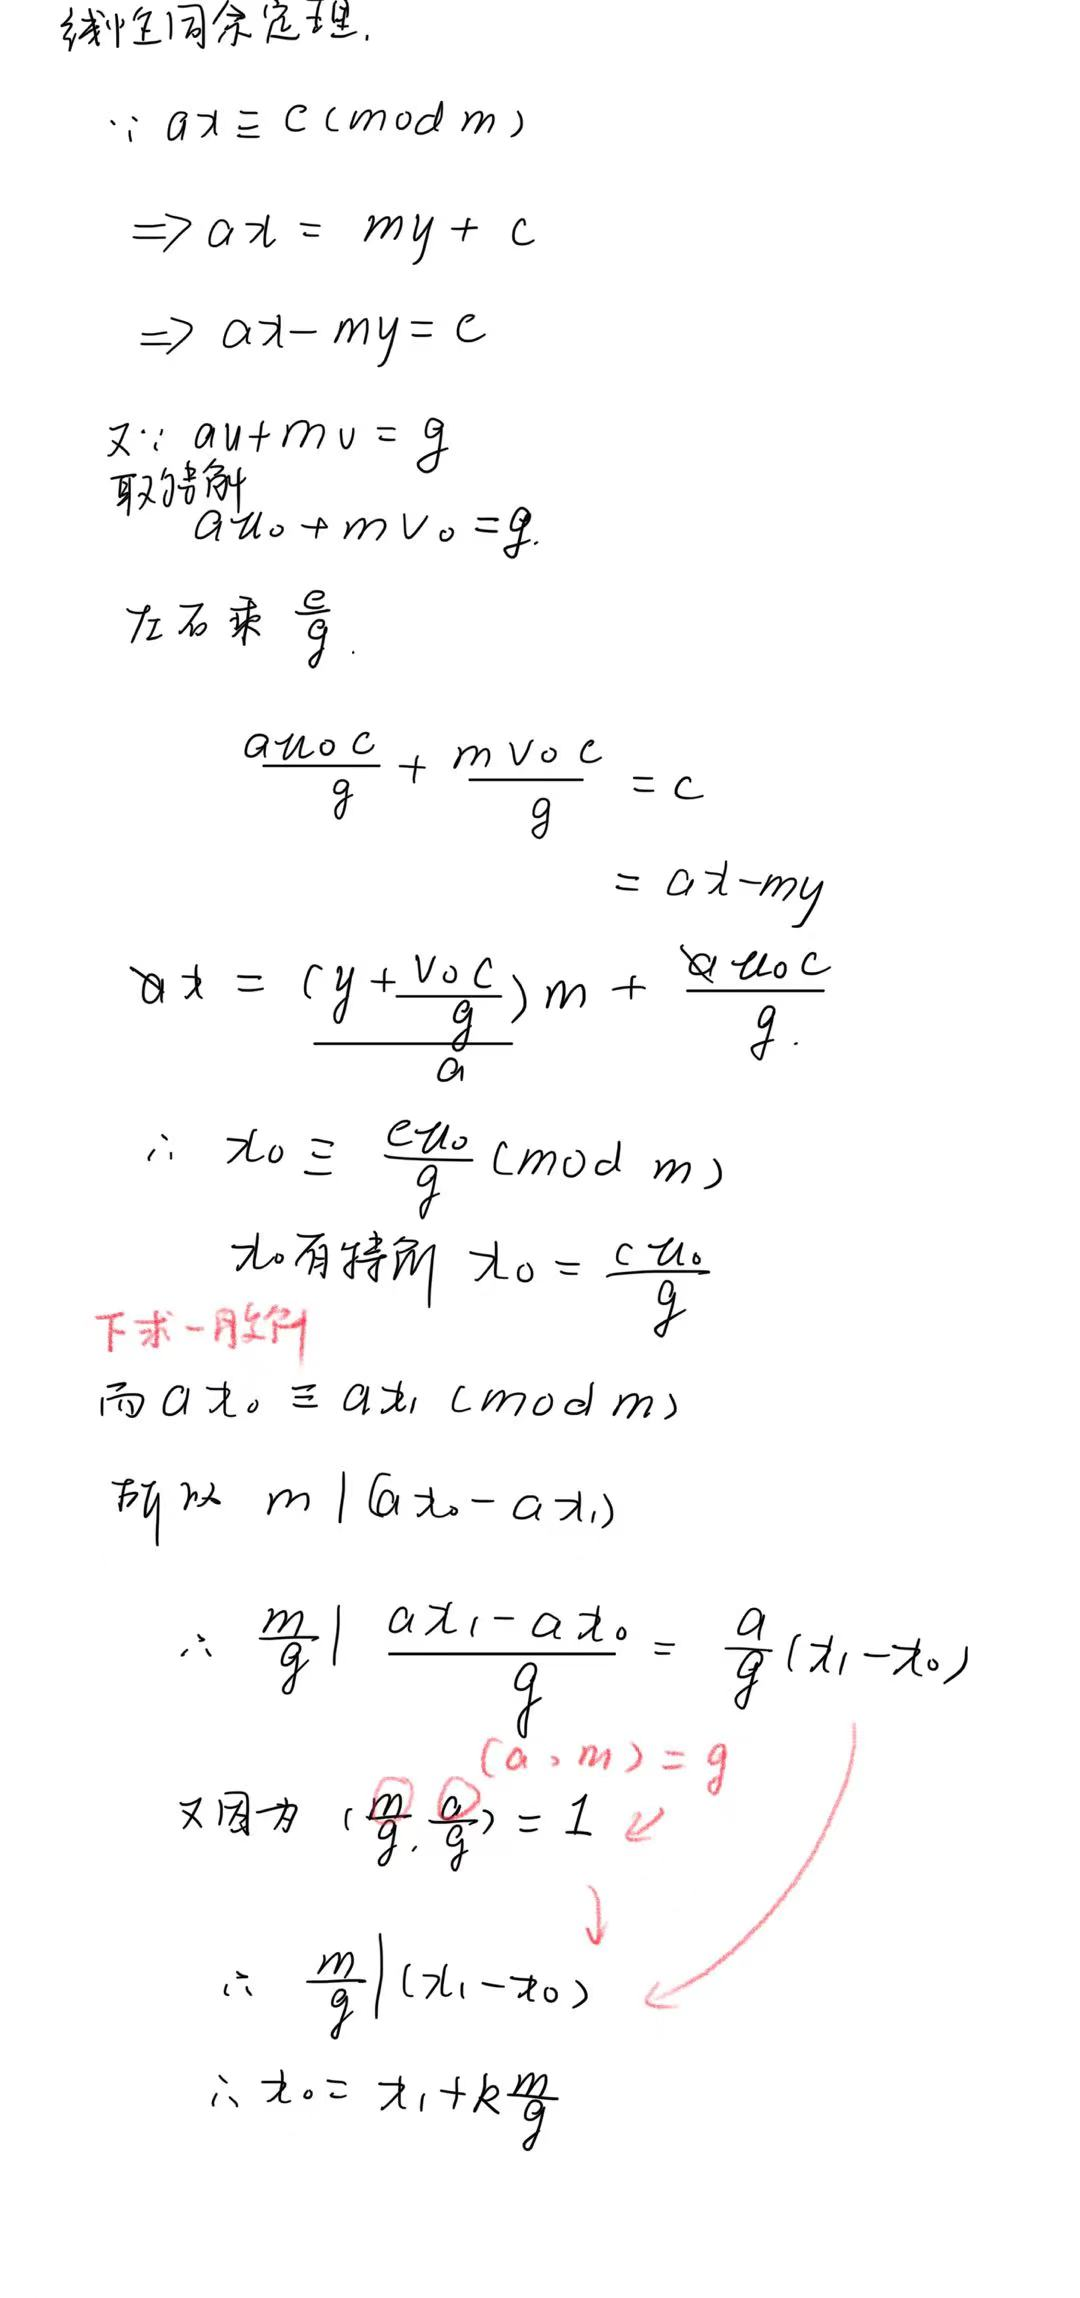 线性同余定理.
∵ ax ≡ c (mod m)
⇒ ax = my + c
⇒ ax - my = c
又∵ au + mv = g
取特解
au₀ + mv₀ = g.
左右乘 c/g.
au₀c/g + mv₀c/g = c
= ax - my
ax = (y + v₀c/g)/a m + au₀c/g.
∴ x₀ ≡ cu₀/g (mod m)
x₀有特解 x₀ = cu₀/g
下求一般解
而 ax₀ ≡ ax₁ (mod m)
所以 m | (ax₀ - ax₁)
∴ m/g | (ax₁ - ax₀)/g = a/g (x₁ - x₀)
(a, m) = g
又因为 (m/g, a/g) = 1
∴ m/g | (x₁ - x₀)
∴ x₀ = x₁ + k m/g